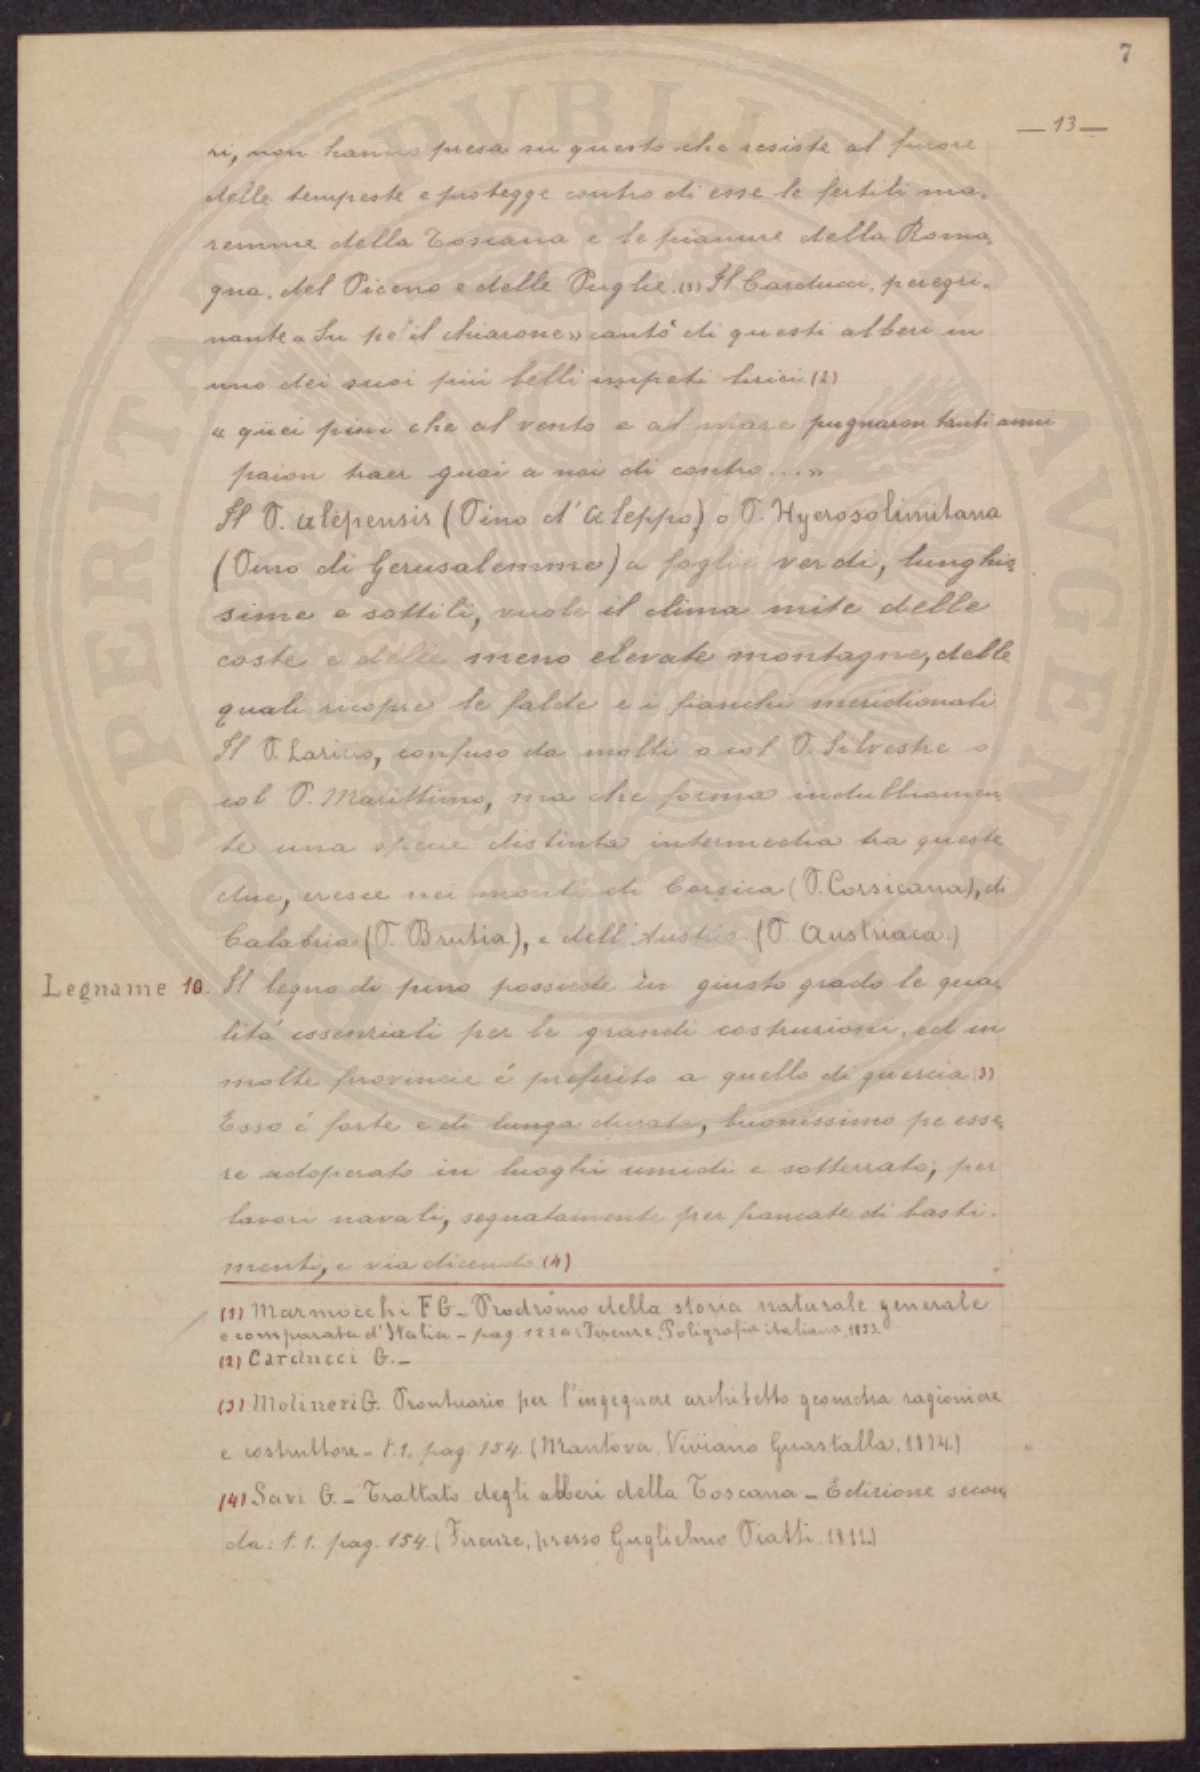 7
— 13 —
ri, non hanno presa su questo che resiste al furore
delle tempeste e protegge contro di esse le fertili ma-
remme della Toscana e le pianure della Roma-
gna, del Piceno e delle Puglie. (1) Il Carducci, peregri-
nante « Su pe' il chiarone » cantò di questi alberi in
uno dei suoi più belli impeti lirici (2)
« quei pini che al vento e al mare pugnaron tanti anni
paion traer guai a noi di contro.... »
Il P. alepensis (Pino d'Aleppo) o P. Hyerosolimitana
(Pino di Gerusalemme) a foglie verdi, lunghis-
sime e sottili, vuole il clima mite delle
coste e delle meno elevate montagne, delle
quali ricopre le falde e i fianchi meridionali
Il P. Laricio, confuso da molti o col P. Silvestre o
col P. Marittimo, ma che forma indubbiamen-
te una specie distinta intermedia tra queste
due, cresce nei monti di Corsica (P. Corsicana), di
Calabria (P. Brutia), e dell'Austria (P. Austriaca.)
Legname 10. Il legno di pino possiede in giusto grado le qua-
lità essenziali per le grandi costruzioni, ed in
molte provincie é preferito a quello di quercia (3)
Esso é forte e di lunga durata, buonissimo pe esse-
re adoperato in luoghi umidi e sotterrato, per
lavori navali, segnatamente per fiancate di basti-
menti, e via dicendo (4)
(1) Marmocchi F G - Prodromo della storia naturale generale
e comparata d'Italia - pag. 122 (Firenze, Poligrafia italiana, 1853.
(2) Carducci G. -
(3) Molineri G. Prontuario per l'ingegnere architetto geometra ragioniere
e costruttore - t. 1. pag. 154. (Mantova, Viviano Guastalla, 1874.)
(4) Savi G. - Trattato degli alberi della Toscana - Edizione secon-
da: t. 1. pag. 154. (Firenze, presso Guglielmo Piatti. 1811.)
PROSPERITATI PVBLICAE AVGENDAE